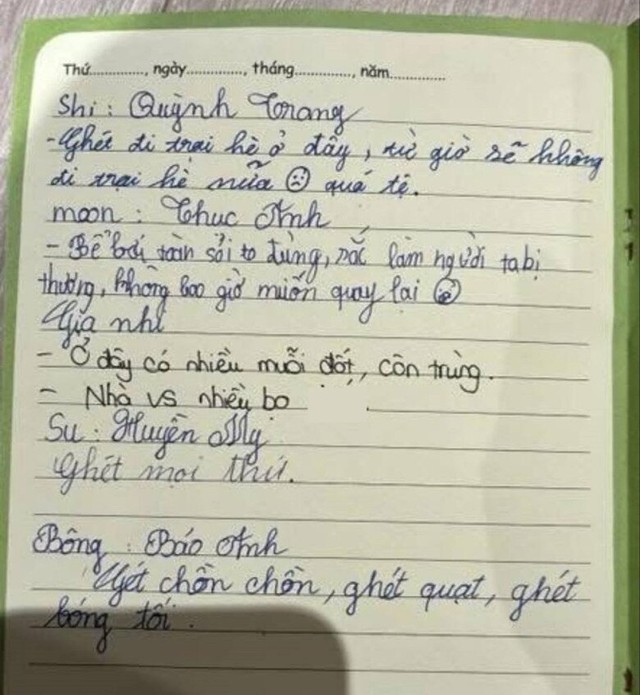 Thứ............., ngày............., tháng............., năm.............
Shi : Quỳnh Trang
- Ghét đi trại hè ở đây, từ giờ sẽ không
đi trại hè nữa ☹ quá tệ.
moon : Thuc Anh
- Bể bơi toàn sỏi to đùng, sắc làm người ta bị
thương, không bao giờ muốn quay lại
Gia nhi
- Ở đây có nhiều muỗi đốt, côn trùng.
- Nhà vs nhiều bo
Su : Huyền My
Ghét mọi thứ.
Bông : Bảo Anh
Gét chồn chồn, ghét quạt, ghét
bóng tối.